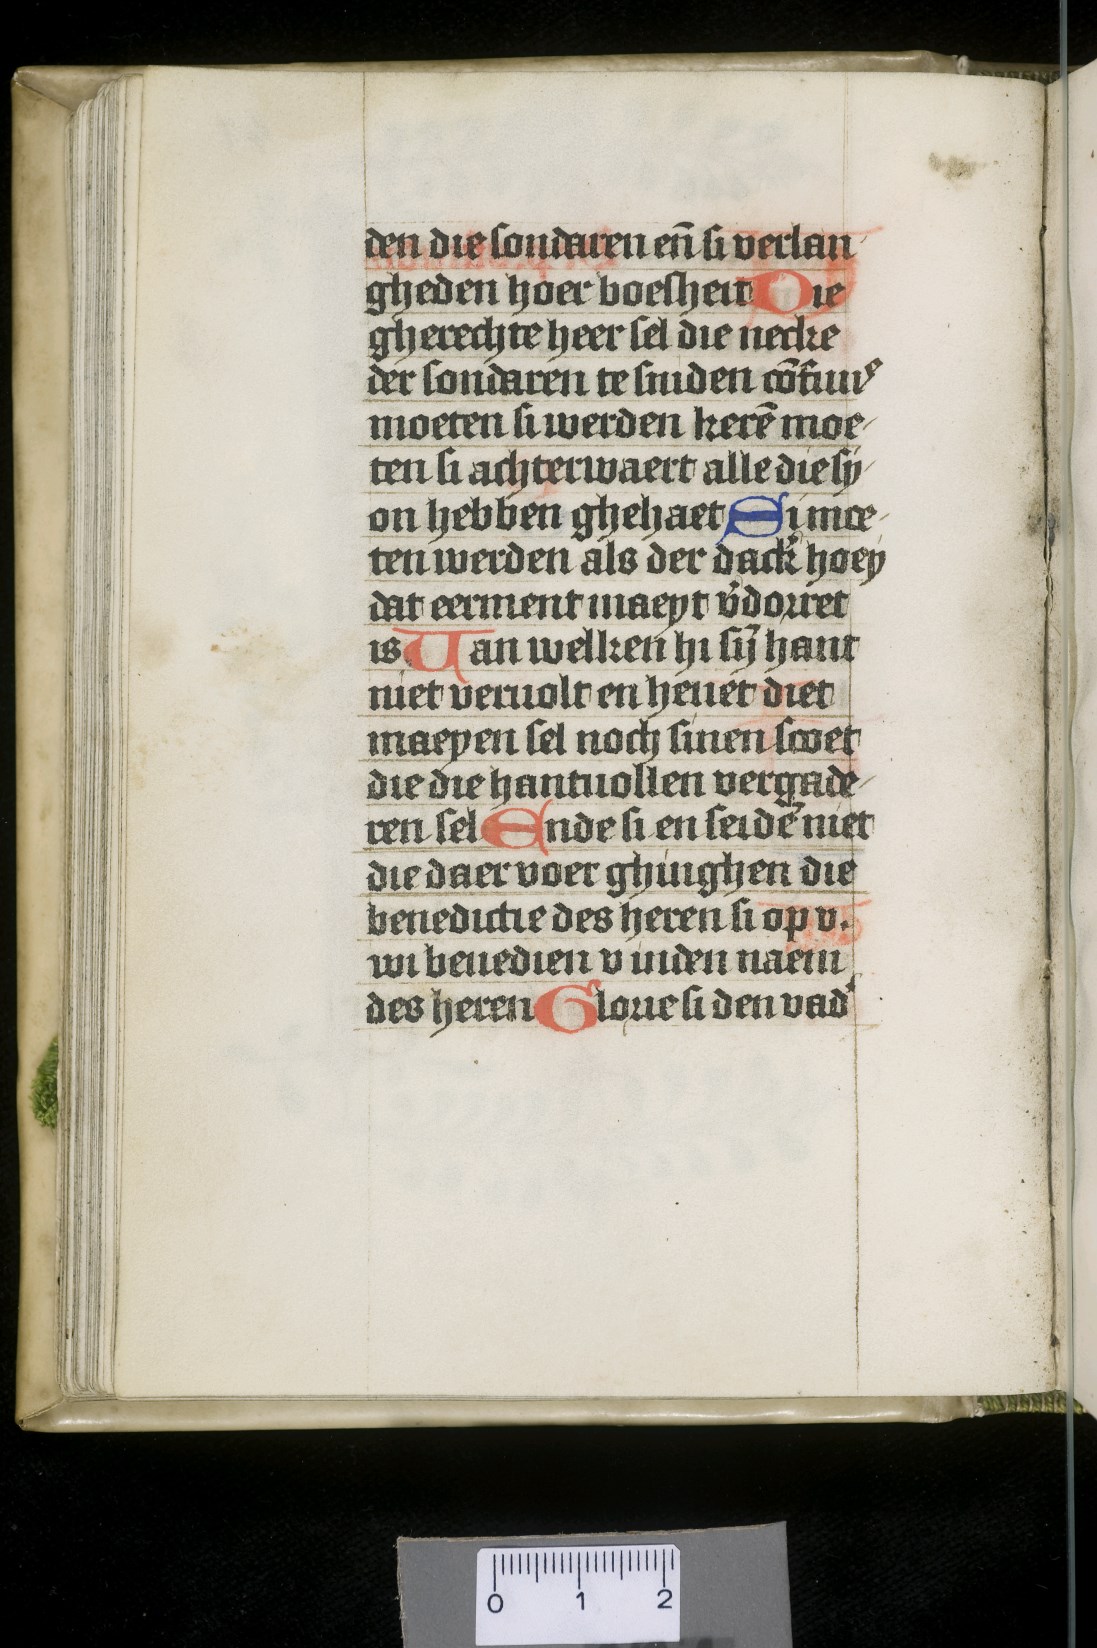 den die sondaren en̄ si verlan
gheden hoer boesheit Die
gherechte heer sel die necke
der sondaren te sniden cōfuus
moeten si werden kerē moe-
ten si achterwaert alle die sy-
on hebben ghehaet Si moe-
ten werden als der dack hoey
dat eerment maeyt v̄dorret
is Van welken hi sij̄ hant
niet veruolt en heuet diet
maeyen sel noch sinen scoet
die die hantuollen vergade-
ren sel Ende si en seidē niet
die daer voer ghinghen die
benedictie des heren si op v.
wi benedien v inden naem
des heren Glorie si den vad'
0 1 2